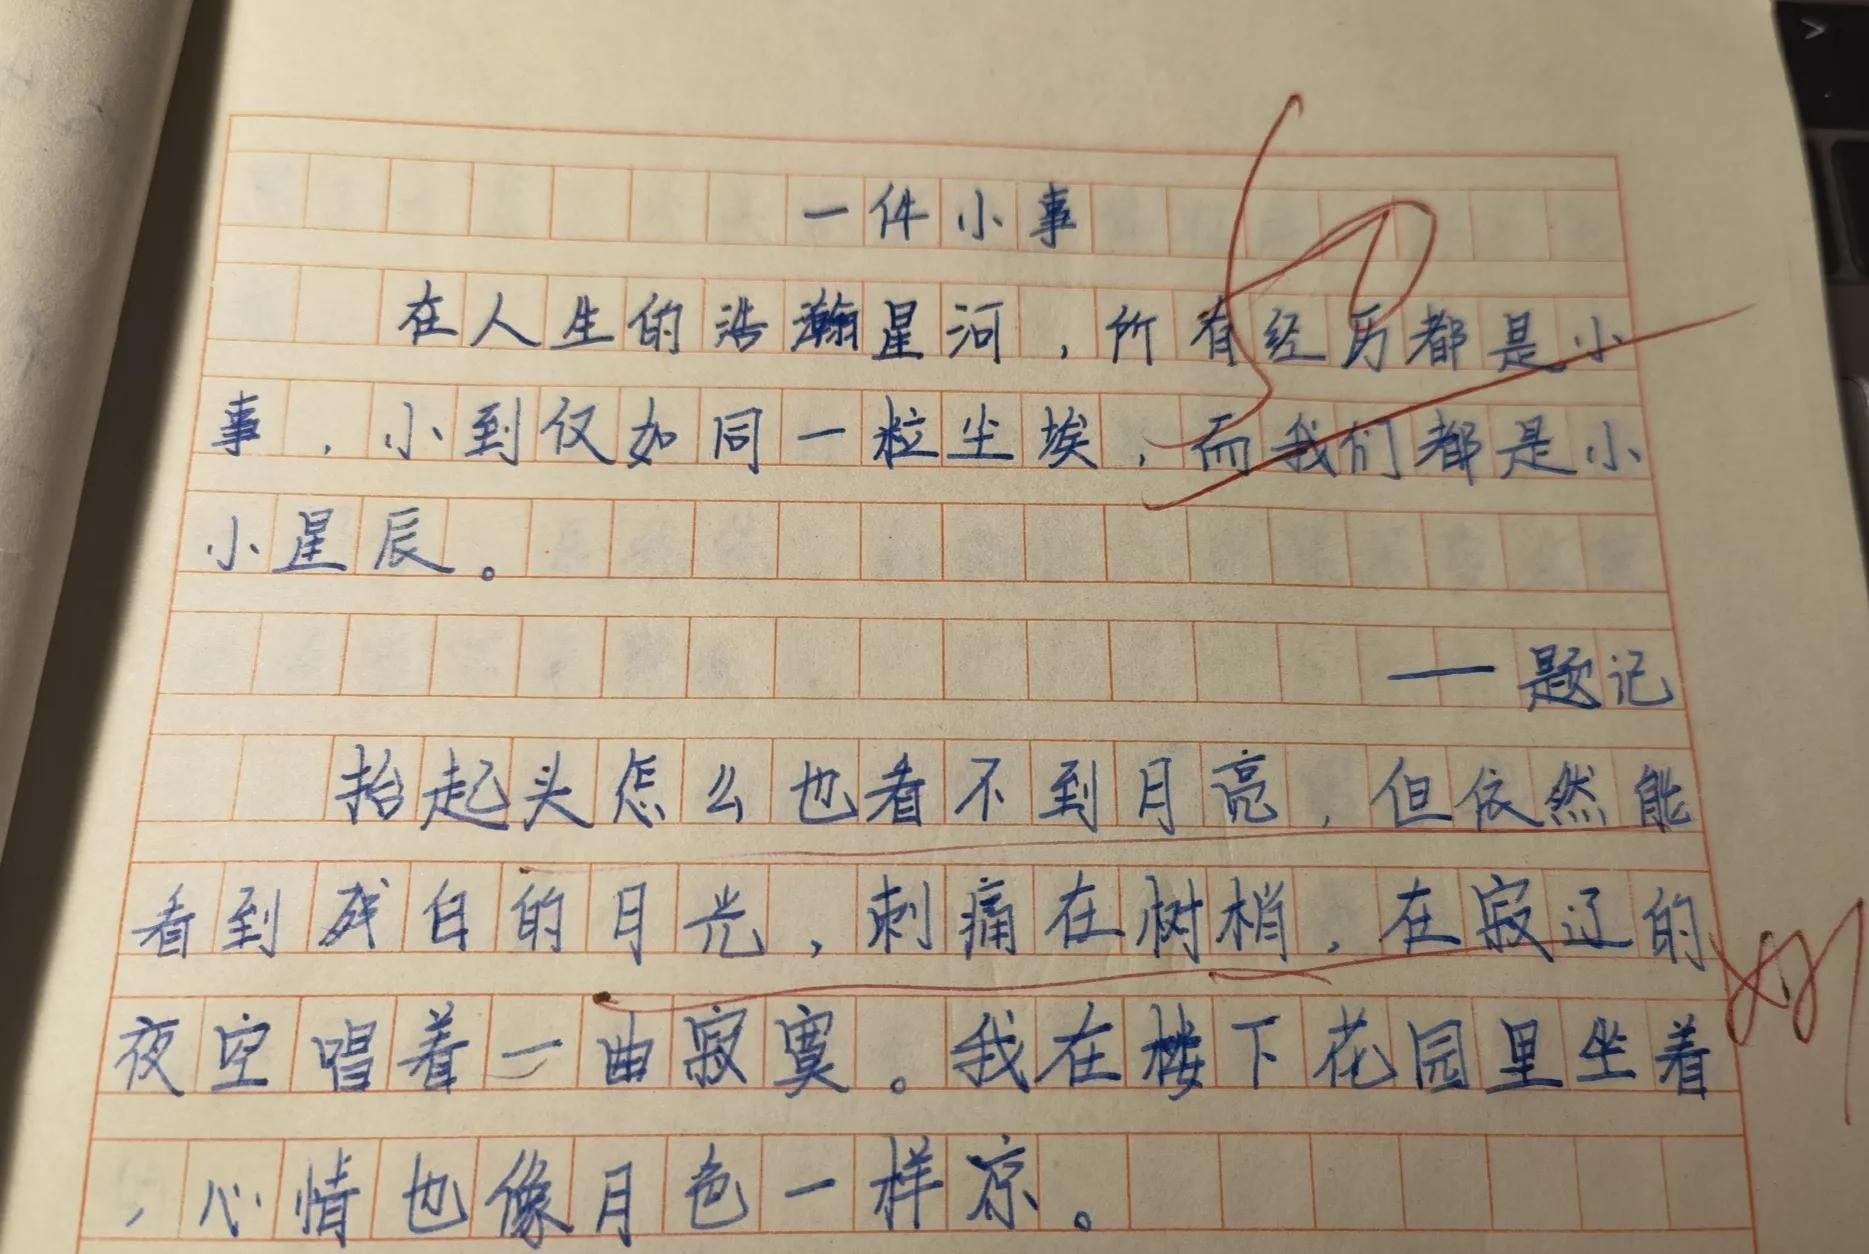 一件小事
在人生的浩瀚星河，所有经历都是小
事，小到仅如同一粒尘埃，而我们都是小
小星辰。
——题记
抬起头怎么也看不到月亮，但依然能
看到残白的月光，刺痛在树梢，在寂辽的
夜空唱着一曲寂寞。我在楼下花园里坐着
，心情也像月色一样凉。